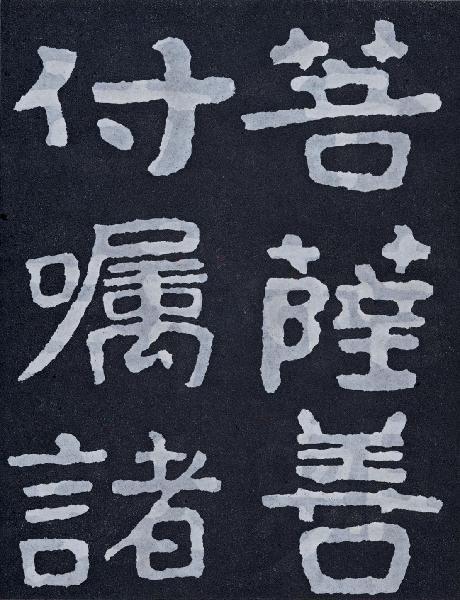 菩薩善
付嘱諸